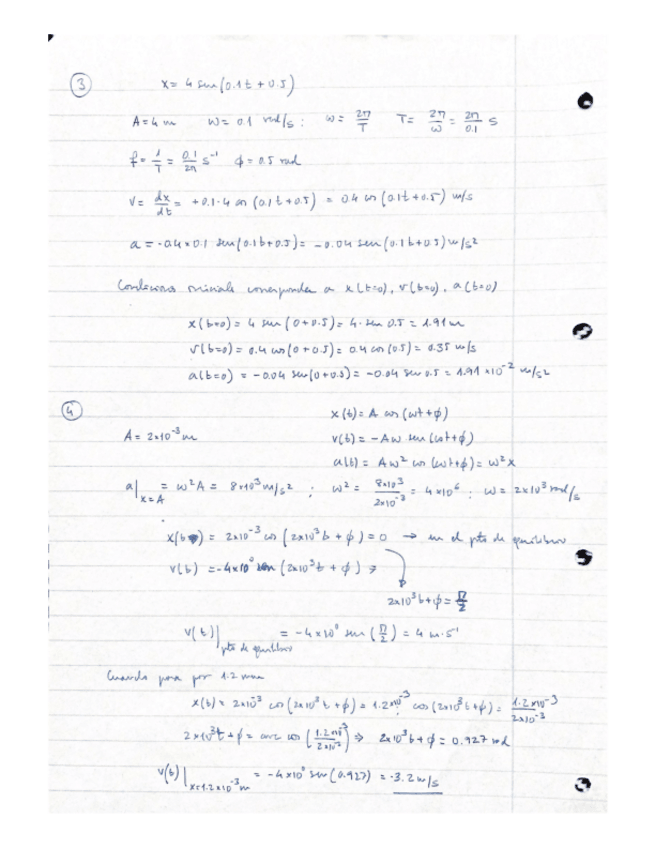 ③ x = 4 sen (0.1t + 0.5)
A = 4 m   ω = 0.1 rad/s :   ω = 2π/T   T = 2π/ω = 2π/0.1 s
f = 1/T = 0.1/2π s⁻¹   ϕ = 0.5 rad
v = dx/dt = +0.1·4 cos (0.1t + 0.5) = 0.4 cos (0.1t + 0.5) m/s
a = -0.4×0.1 sen (0.1t + 0.5) = -0.04 sen (0.1t + 0.5) m/s²
Condiciones iniciales corresponden a x(t=0), v(t=0), a(t=0)
x(t=0) = 4 sen (0+0.5) = 4· sen 0.5 = 1.91 m
v(t=0) = 0.4 cos (0+0.5) = 0.4 cos (0.5) = 0.35 m/s
a(t=0) = -0.04 sen (0+0.5) = -0.04 sen 0.5 = 1.91 ×10⁻² m/s²
④ x(t) = A cos (ωt + ϕ)
A = 2×10⁻³ m   v(t) = -Aω sen (ωt + ϕ)
a(t) = Aω² cos (ωt + ϕ) = ω²x
a|x=A = ω²A = 8×10³ m/s² ;   ω² = 8×10³/2×10⁻³ = 4×10⁶ ; ω = 2×10³ rad/s
x(t) = 2×10⁻³ cos (2×10³t + ϕ) = 0 → en el pto de equilibrio
v(t) = -4×10⁰ sen (2×10³t + ϕ) →
2×10³t + ϕ = π/2
v(t)|pto de equilibrio = -4×10⁰ sen (π/2) = 4 m·s⁻¹
Cuando pasa por 1.2 mm
x(t) = 2×10⁻³ cos (2×10³t + ϕ) = 1.2×10⁻³ ; cos (2×10³t + ϕ) = 1.2×10⁻³/2×10⁻³
2×10³t + ϕ = arc cos (1.2×10⁻³/2×10⁻³) ⇒ 2×10³t + ϕ = 0.927 rad
v(t)|x=1.2×10⁻³ m = -4×10⁰ sen (0.927) = -3.2 m/s